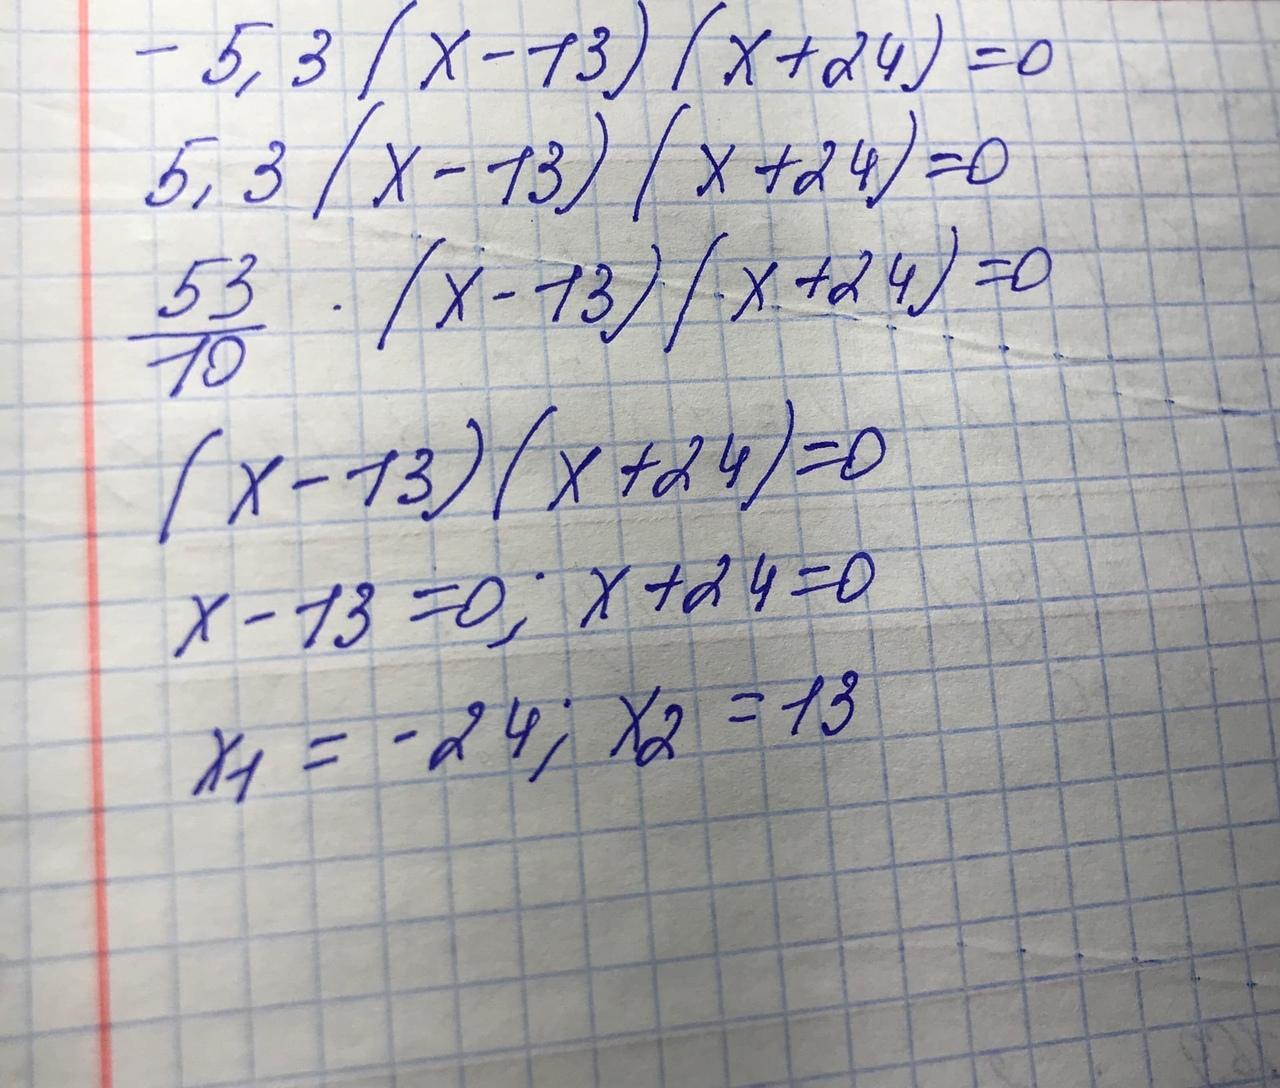 - 5,3 (x - 13) (x + 24) = 0
5,3 (x - 13) (x + 24) = 0
53/10 · (x - 13) (x + 24) = 0
(x - 13) (x + 24) = 0
x - 13 = 0; x + 24 = 0
x1 = -24; x2 = 13